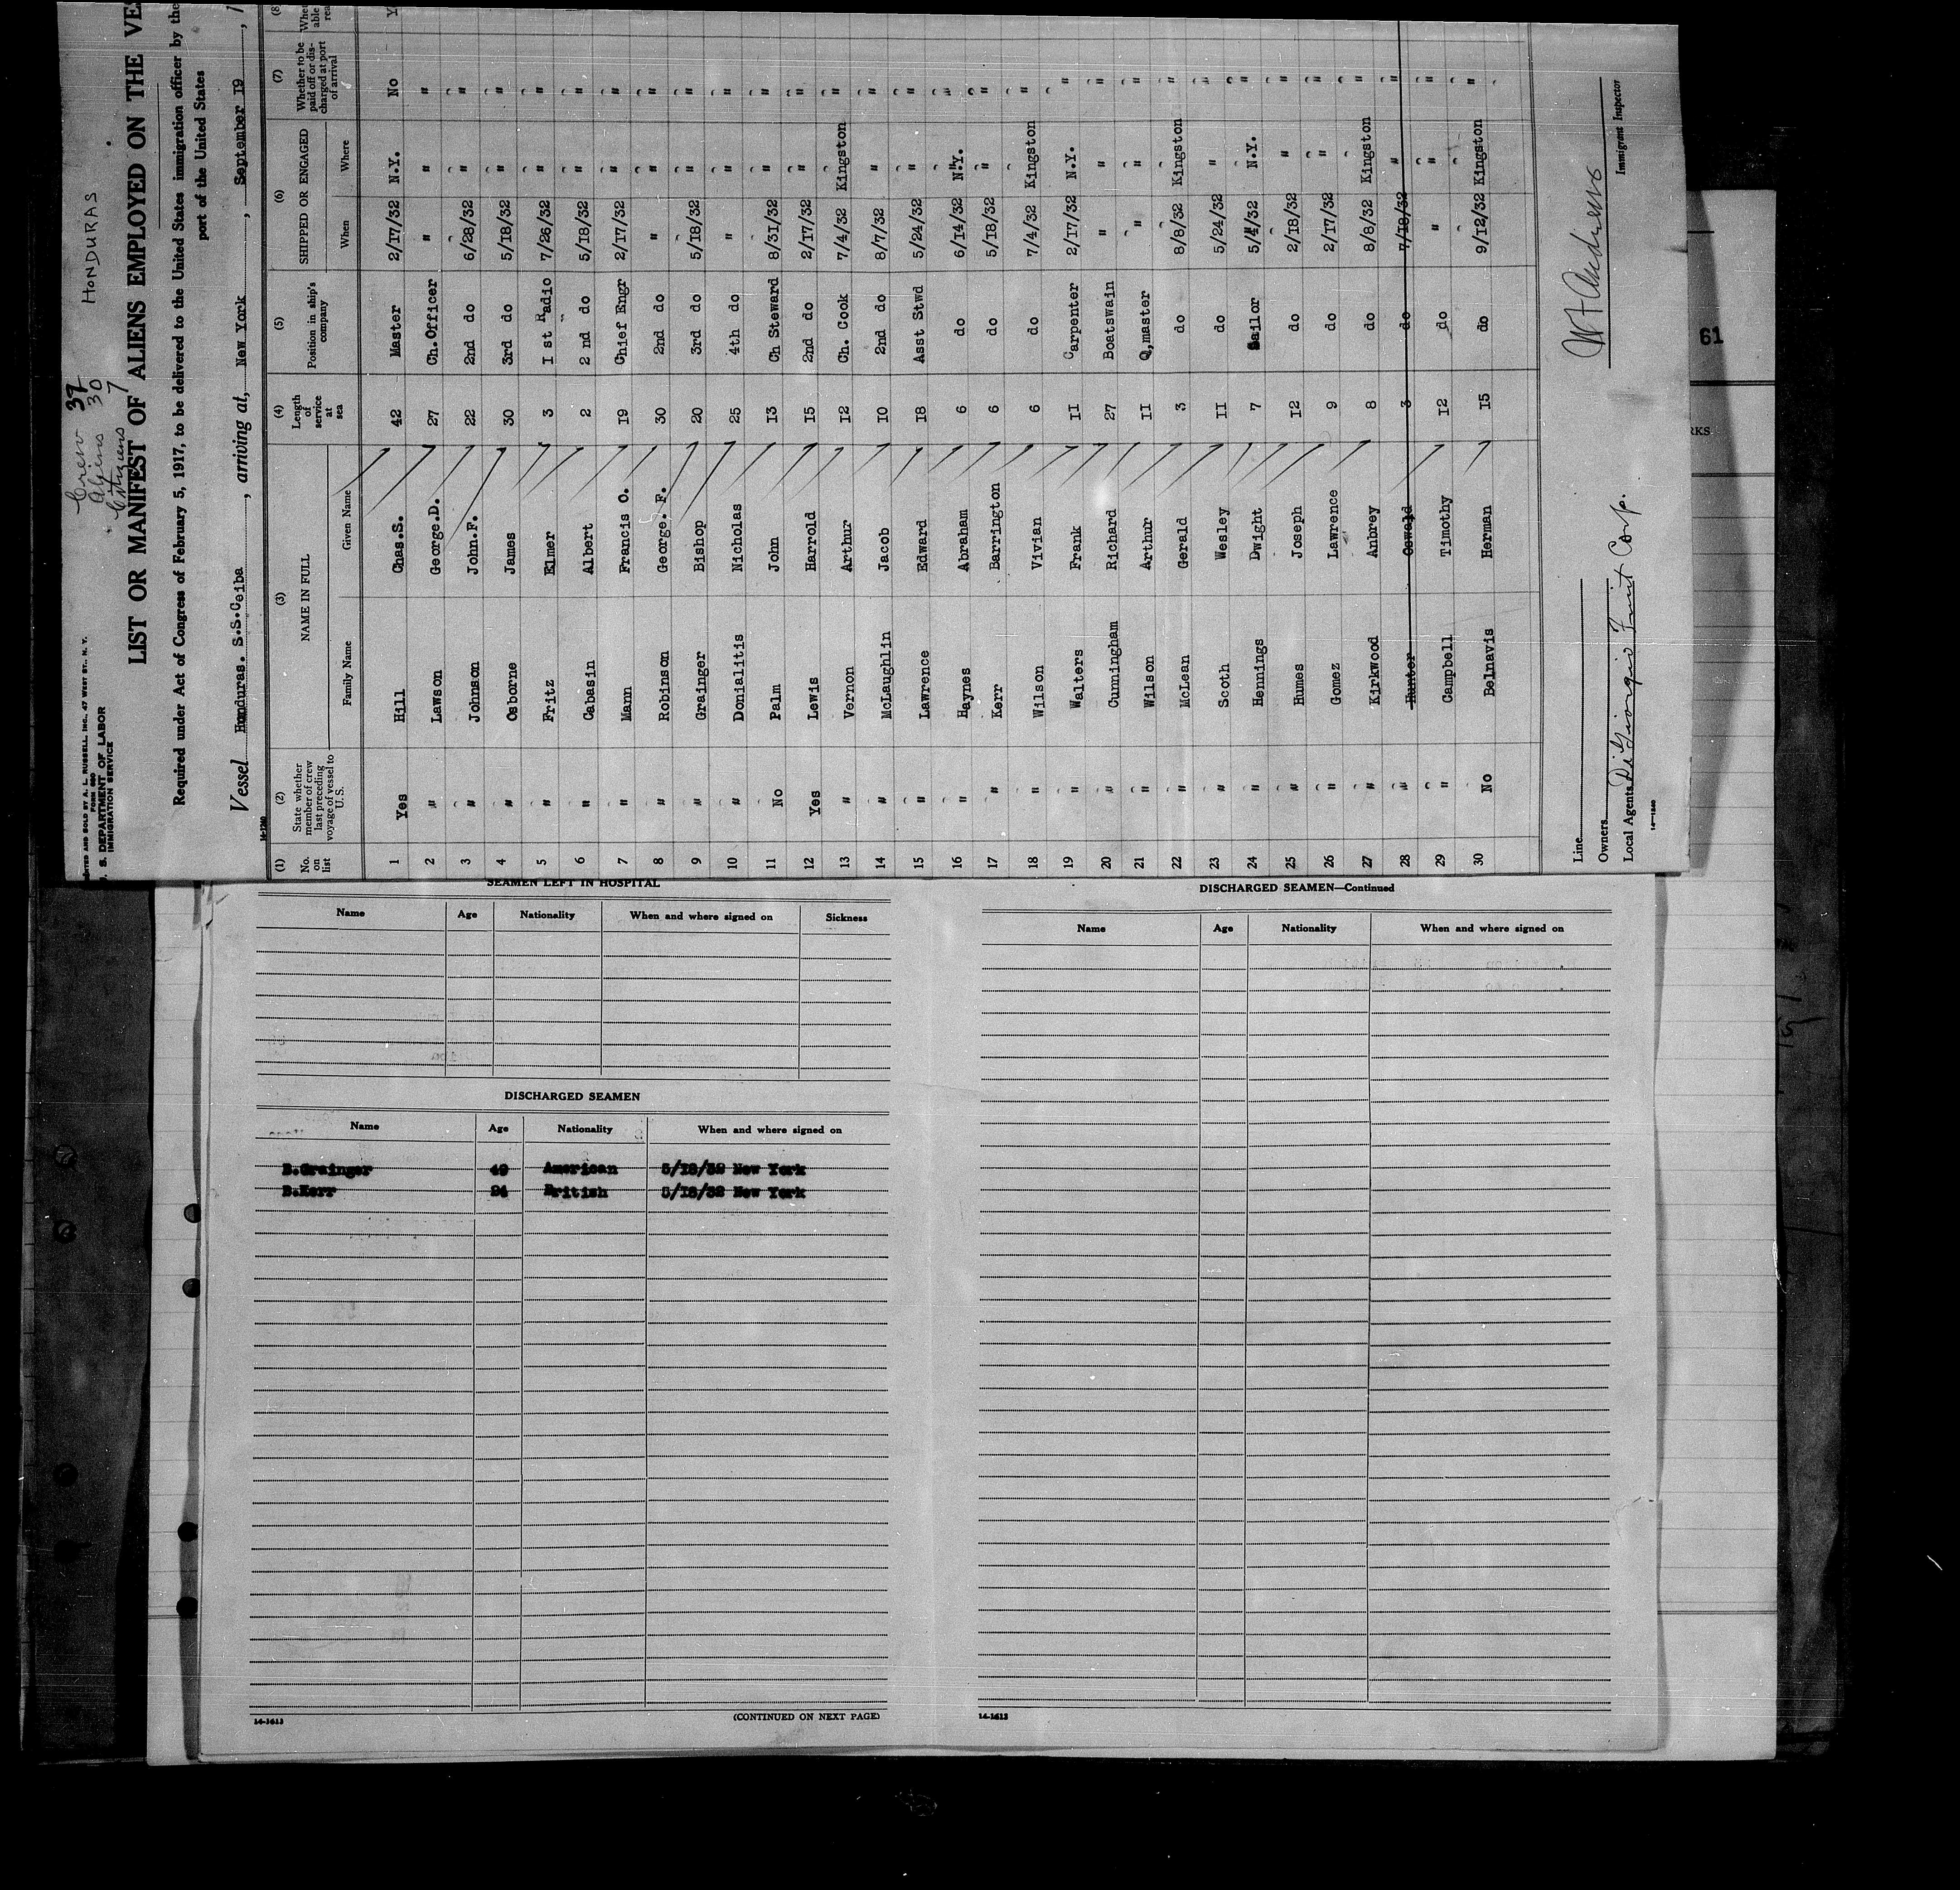 HONDURAS
Crew 37
Aliens 30
Citizens 7
PRINTED AND SOLD BY A. L. RUSSELL, INC., 47 WEST ST., N. Y.
S. DEPARTMENT OF LABOR
IMMIGRATION SERVICE
LIST OR MANIFEST OF ALIENS EMPLOYED ON THE
Required under Act of Congress of February 5, 1917, to be delivered to the United States immigration officer by the
port of the United States
Vessel Honduras. S.S.Ceiba , arriving at, New York , September 19 , 1
14-1240
(1) (2) (3) (4) (5) (6) (7) (8)
No. on list State whether member of crew last preceding voyage of vessel to U.S. NAME IN FULL Length of service at sea Position in ship's company SHIPPED OR ENGAGED Whether to be paid off or discharged at port of arrival
Family Name Given Name When Where
1 Yes Hill Chas.S. 42 Master 2/17/32 N.Y. No Y
2 " Lawson George.D. 27 Ch.Officer " " "
3 " Johnson John.F. 22 2nd do 6/28/32 " "
4 " Osborne James 30 3rd do 5/18/32 " "
5 " Fritz Elmer 3 I st Radio 7/26/32 " "
6 " Cabasin Albert 2 2 nd do 5/18/32 " "
7 " Mann Francis O. 19 Chief Engr 2/17/32 " "
8 " Robinson George. F. 30 2nd do " " "
9 " Grainger Bishop 20 3rd do 5/18/32 " "
10 " Donialitis Nicholas 25 4th do " " "
11 No Palm John 13 Ch Steward 8/31/32 " "
12 Yes Lewis Harrold 15 2nd do 2/17/32 " "
13 " Vernon Arthur 12 Ch. Cook 7/4/32 Kingston "
14 " McLaughlin Jacob 10 2nd do 8/7/32 " "
15 " Lawrence Edward 18 Asst Stwd 5/24/32 " "
16 " Haynes Abraham 6 do 6/14/32 N.Y. "
17 " Kerr Barrington 6 do 5/18/32 " "
18 " Wilson Vivian 6 do 7/4/32 Kingston "
19 " Walters Frank 11 Carpenter 2/17/32 N.Y. "
20 " Cunningham Richard 27 Boatswain " " "
21 " Wilson Arthur 11 Q,master " " "
22 " McLean Gerald 3 do 8/8/32 Kingston "
23 " Scoth Wesley 11 do 5/24/32 " "
24 " Hennings Dwight 7 Sailor 5/4/32 N.Y. "
25 " Humes Joseph 12 do 2/18/32 " "
26 " Gomez Lawrence 9 do 2/17/32 " "
27 " Kirkwood Anbrey 8 do 8/8/32 Kingston "
28 " Hunter Oswald 3 do 7/18/32 " "
29 " Campbell Timothy 12 do " " "
30 No Belnavis Herman 15 do 9/12/32 Kingston "
Line
Owners
Local Agents DiGiorgio Fruit Corp.
Immigrant Inspector
14-1240
61
RKS
SEAMEN LEFT IN HOSPITAL
Name Age Nationality When and where signed on Sickness
DISCHARGED SEAMEN
Name Age Nationality When and where signed on
B.Grainger 49 American 5/18/32 New York
B.Kerr 24 British 5/18/32 New York
14-1613 (CONTINUED ON NEXT PAGE)
DISCHARGED SEAMEN—Continued
Name Age Nationality When and where signed on
14-1613